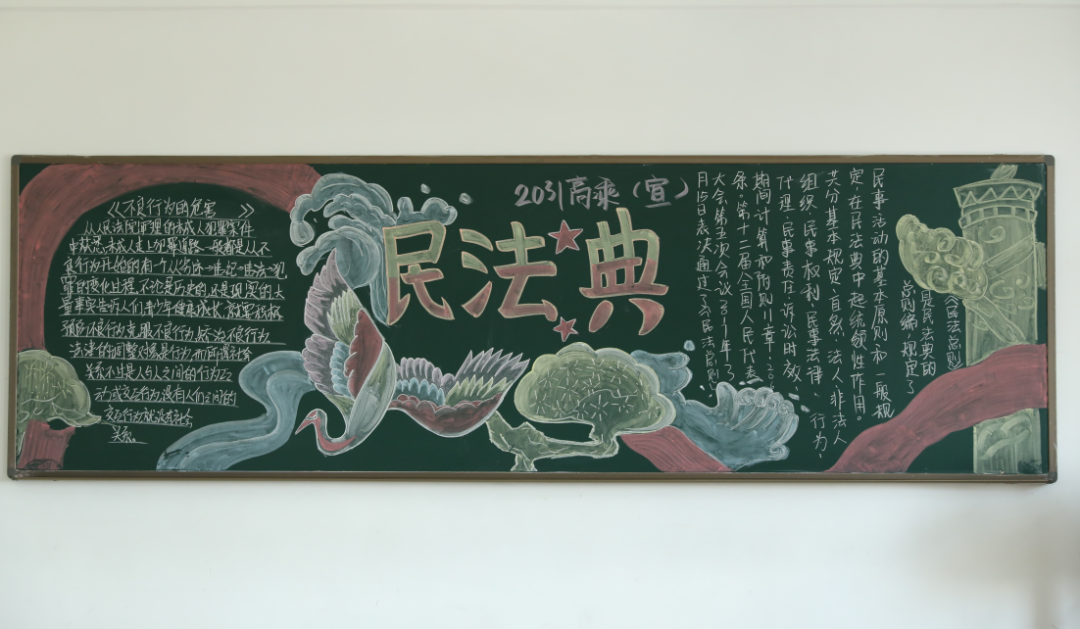 《不良行为的危害》
从人民法院审理的未成人犯罪案件
未成人走上犯罪道路,一般都是从不
良行为开始的有一个从
的变化过程,不仅是历史的,这是现实的大
量事实告诉人们,青少年健康成长,就要积极
预防不良行为克服不良行为,不良行为
法律的调整对象是行为,而所谓社会
关系不过是人与人之间的行为互
动或交互行为,没有人们之间的
交互行为,就没有社会
关系。
2031高乘(宣)
民法典
《民法总则》
是民法典的
总则编,规定了
民事活动的基本原则和一般规
定,在民法典中起统领性作用。
共分基本规定、自然人、法人、非法人
组织、民事权利、民事法律、行为、
代理、民事责任、诉讼时效、
期间计算和附则11章。
第十二届全国人民代表
大会第五次会议
月15日表决通过了《民法总则》